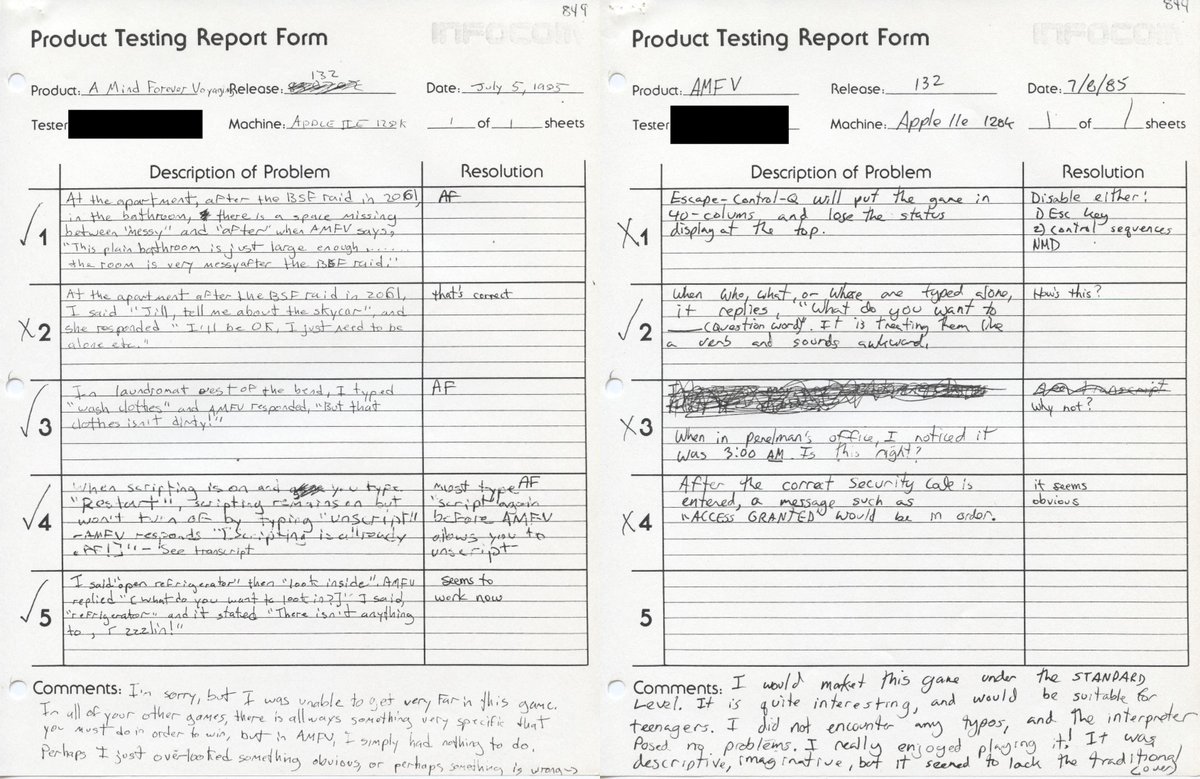 849
Product Testing Report Form
INFOCOM
Product: A Mind Forever Voyaging Release: 132 Date: July 5, 1985
Tester Machine: APPLE IIE 128K 1 of 1 sheets
Description of Problem Resolution
1
At the apartment, after the BSF raid in 2061, AF
in the bathroom, there is a space missing
between "messy" and "after" when AMFV says,
"This plain bathroom is just large enough......
the room is very messyafter the BSF raid."
2
At the apartment after the BSF raid in 2061, that's correct
I said "Jill, tell me about the skycar", and
she responded "I'll be OK, I just need to be
alone etc."
3
In laundromat west of the bend, I typed AF
"wash clothes" and AMFV responded, "But that
clothes isn't dirty!"
4
When scripting is on and you type must type AF
"Restart", scripting remains on but "script" again
won't turn off by typing "unscript" before AMFV
-AMFV responds "[Scripting is already allows you to
off]" - See transcript unscript
5
I said "open refrigerator" then "look inside". AMFV seems to
replied "[What do you want to look in?]" I said, work now
"refrigerator" and it stated "There isn't anything
to, r zzzlin!"
Comments: I'm sorry, but I was unable to get very far in this game.
In all of your other games, there is allways something very specific that
you must do in order to win, but in AMFV, I simply had nothing to do.
Perhaps I just overlooked something obvious, or perhaps something is wrong→
849
Product Testing Report Form
INFOCOM
Product: AMFV Release: 132 Date: 7/6/85
Tester Machine: Apple IIe 128K 1 of 1 sheets
Description of Problem Resolution
1
Escape-Control-Q will put the game in Disable either:
40-colums, and lose the status 1) Esc key
display at the top. 2) control sequences
NMD
2
When who, what, or where are typed alone, How's this?
it replies, "What do you want to
___ (question word)". It is treating them like
a verb and sounds awkward.
3
why not?
When in perelman's office, I noticed it
was 3:00 AM. Is this right?
4
After the correct Security Code is it seems
entered, a message such as obvious
"ACCESS GRANTED" would be in order.
5
Comments: I would market this game under the STANDARD
Level. It is quite interesting, and would be suitable for
teenagers. I did not encounter any typos, and the interpreter
Posed no problems. I really enjoyed playing it! It was
descriptive, imaginative, but it seemed to lack the traditional
(over)